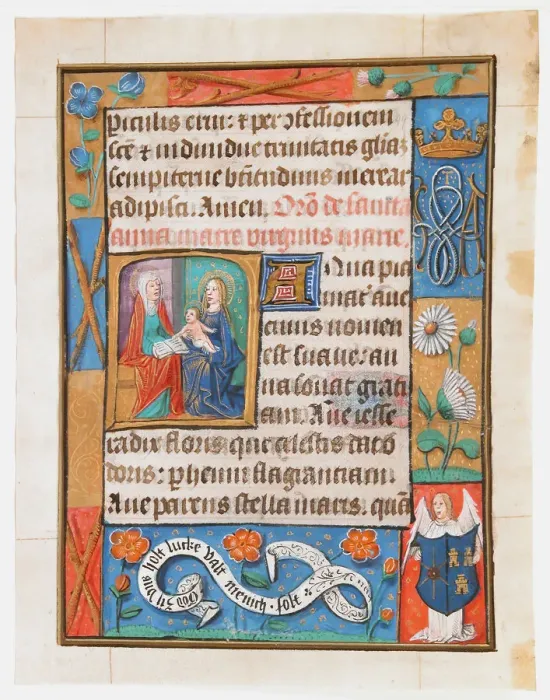 piculis erui: ⁊ per ɔfessionem
scē ⁊ indiuidue trinitatis gliaꝫ
sempiterne btitudinis merear
adipisci. Amen. Orō de sancta
anna matre virginis marie.
Anna pia
mat̄ aue
cuius nomen
est suaue: an
na sonat grati
am. Aue iesse
radix floris, que celestis dato
doris:
Aue parens stella maris. quā
holt lucke valt